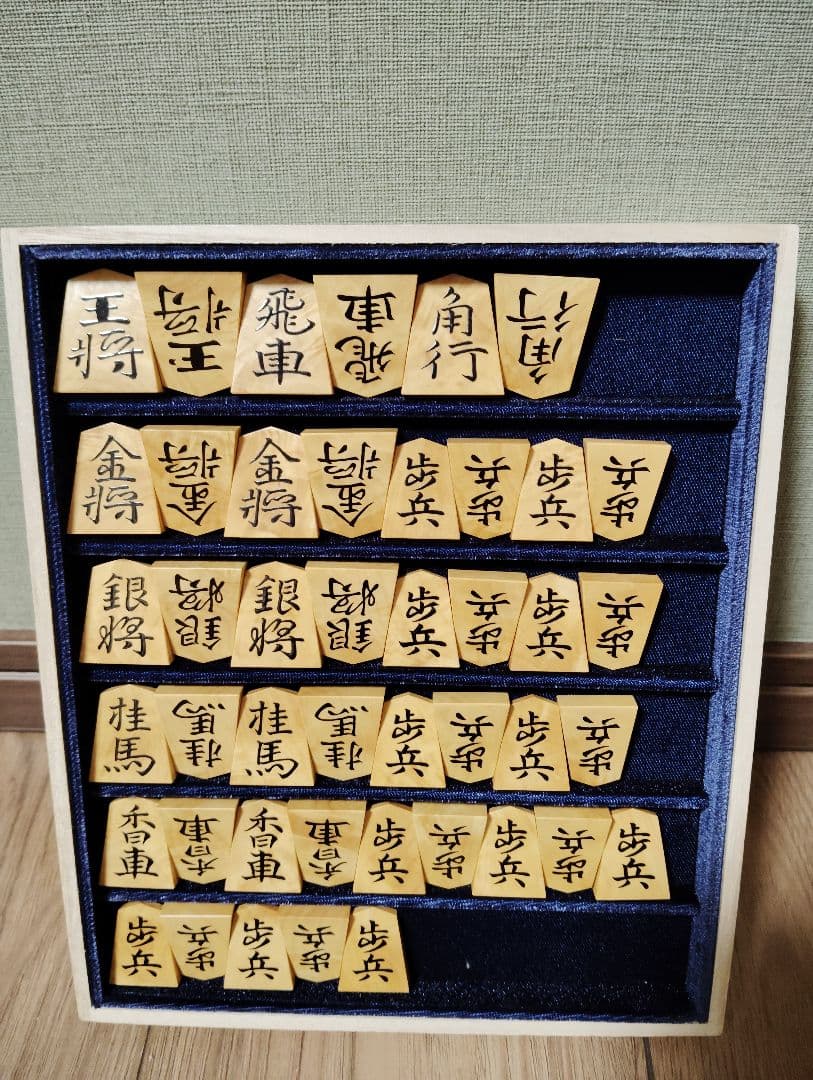 王将 玉将 飛車 飛車 角行 角行
金将 金将 金将 金将 歩兵 歩兵 歩兵 歩兵
銀将 銀将 銀将 銀将 歩兵 歩兵 歩兵 歩兵
桂馬 桂馬 桂馬 桂馬 歩兵 歩兵 歩兵 歩兵
香車 香車 香車 香車 歩兵 歩兵 歩兵 歩兵 歩兵
歩兵 歩兵 歩兵 歩兵 歩兵